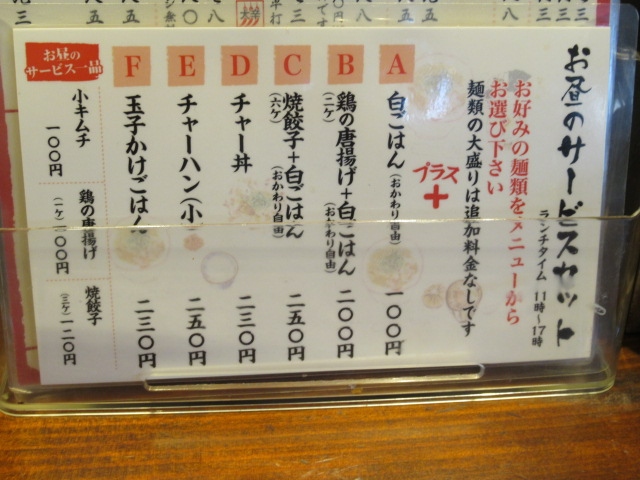 お昼のサービスセット
ランチタイム 11時〜17時
お好みの麺類をメニューから
お選び下さい
麺類の大盛りは追加料金なしです
プラス
+
A
白ごはん(おかわり自由)
一〇〇円
B
鶏の唐揚げ+白ごはん
(二ケ)
(おかわり自由)
二〇〇円
C
焼餃子+白ごはん
(六ケ)
(おかわり自由)
二五〇円
D
チャー丼
二三〇円
E
チャーハン(小
二五〇円
F
玉子かけごはん
二三〇円
お昼の
サービス一品
小キムチ
一〇〇円
鶏の唐揚げ
(一ケ)一〇〇円
焼餃子
(三ケ)一二〇円